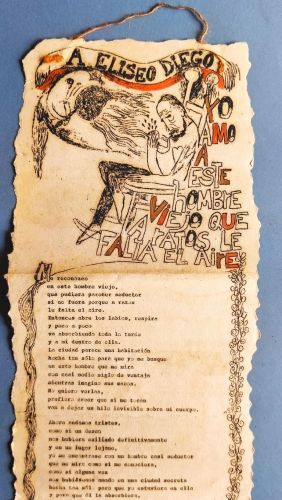 A ELISEO DIEGO
YO
AMO
A
ESTE
HOMBRE
VIEJO QUE
A RATOS LE
FALTA EL AIRE
Me reconozco
en este hombre viejo,
que pudiera parecer seductor
si no fuera porque a ratos
le falta el aire.
Entonces abre los labios, respira
y poco a poco
va absorbiendo toda la tarde
y a mí dentro de ella.
La ciudad parece una habitación
hecha tan sólo para que yo me busque
en este hombre que me mira
con casi medio siglo de ventaja
mientras imagino sus manos.
No quiero verlas,
prefiero creer que si me tocan
van a dejar un hilo invisible sobre mi cuerpo.
Ahora andamos tristes,
como si un deseo
nos hubiera exiliado definitivamente
y en un lugar lejano,
yo me encontrara con un hombre casi seductor
que me mira como si me conociera,
como si alguna vez
nos hubiésemos amado en una ciudad secreta
hecha tan sólo para que yo estuviera en ella
y para que él la absorbiera,